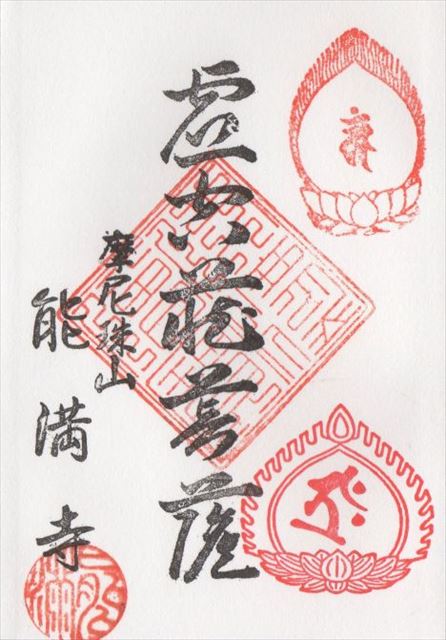 虚空蔵菩薩
摩尼珠山
能満寺